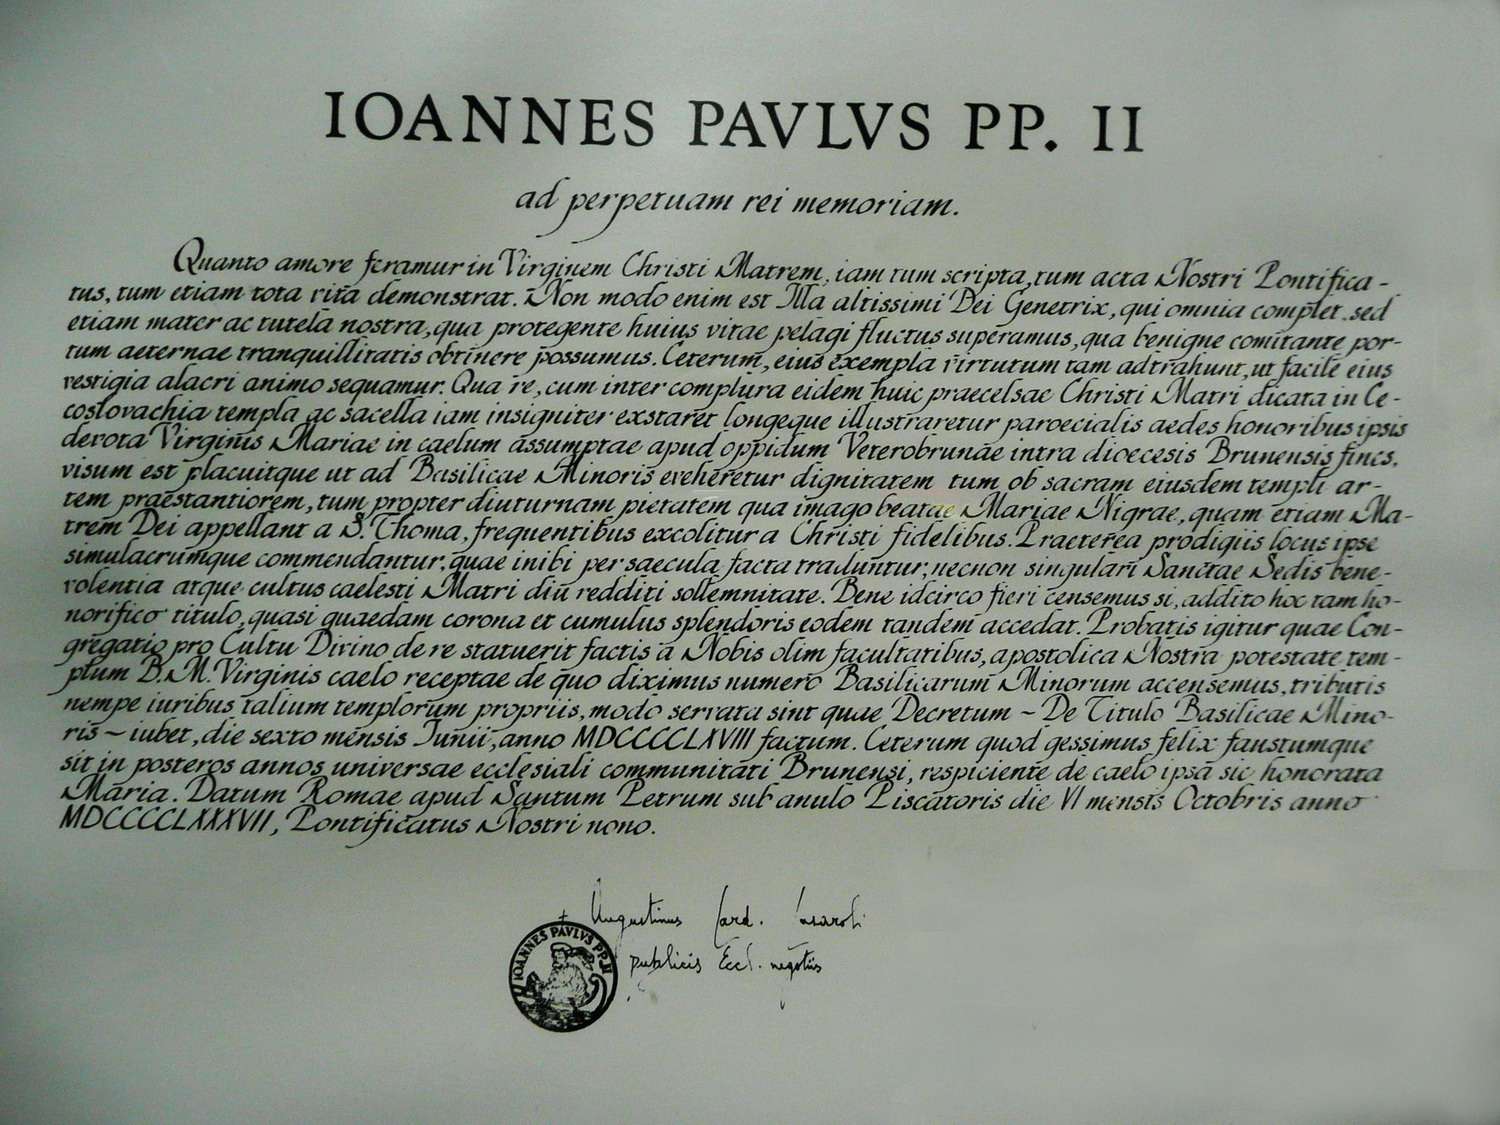 IOANNES PAVLVS PP. II
ad perpetuam rei memoriam.
Quanto amore feramur in Virginem Christi Matrem, iam tum scripta, tum acta Nostri Pontifica-
tus, tum etiam tota vita demonstrat. Non modo enim est Illa altissimi Dei Genetrix, qui omnia complet, sed
etiam mater ac tutela nostra, qua protegente huius vitae pelagi fluctus superamus, qua benigne comitante por-
tum aeternae tranquillitatis obtinere possumus. Ceterum, eius exempla virtutum tam adtrahunt, ut facile eius
vestigia alacri animo sequamur. Qua re, cum inter complura eidem huic praecelsae Christi Matri dicata in Ce-
coslovachia templa ac sacella iam insigniter exstaret longeque illustraretur paroecialis aedes honoribus ipsis
devota Virginis Mariae in caelum assumptae apud oppidum Veterobrunae intra dioecesis Brunensis fines,
visum est placuitque ut ad Basilicae Minoris eveheretur dignitatem tum ob sacram eiusdem templi ar-
tem praestantiorem, tum propter diuturnam pietatem qua imago beatae Mariae Nigrae, quam etiam Ma-
trem Dei appellant a S. Thoma, frequentibus excolitur a Christi fidelibus. Praeterea prodigiis locus ipse
simulacrumque commendantur, quae inibi per saecula facta traduntur; necnon singulari Sanctae Sedis bene-
volentia atque cultus caelesti Matri diu redditi sollemnitate. Bene idcirco fieri censemus si, addito hoc tam ho-
norifico titulo, quasi quaedam corona et cumulus splendoris eodem tandem accedat. Probatis igitur quae Con-
gregatio pro Cultu Divino de re statuerit factis a Nobis olim facultatibus, apostolica Nostra potestate tem-
plum B. M. Virginis caelo receptae de quo diximus numero Basilicarum Minorum accensemus, tributis
nempe iuribus talium templorum propriis, modo servata sint quae Decretum ~ De Titulo Basilicae Mino-
ris ~ iubet, die sexto mensis Iunii, anno MDCCCCLXVIII factum. Ceterum quod gessimus felix faustumque
sit in posteros annos universae ecclesiali communitati Brunensi, respiciente de caelo ipsa sic honorata
Maria. Datum Romae apud Santum Petrum sub anulo Piscatoris die VI mensis Octobris anno
MDCCCCLXXXVII, Pontificatus Nostri nono.
+ Augustinus Card. Casaroli
publicis Eccl. negotiis
IOANNES PAVLVS PP. II